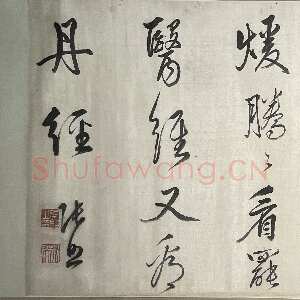 煖騰〻看罷
醫經又看
丹經
張照
Shufawang.CN